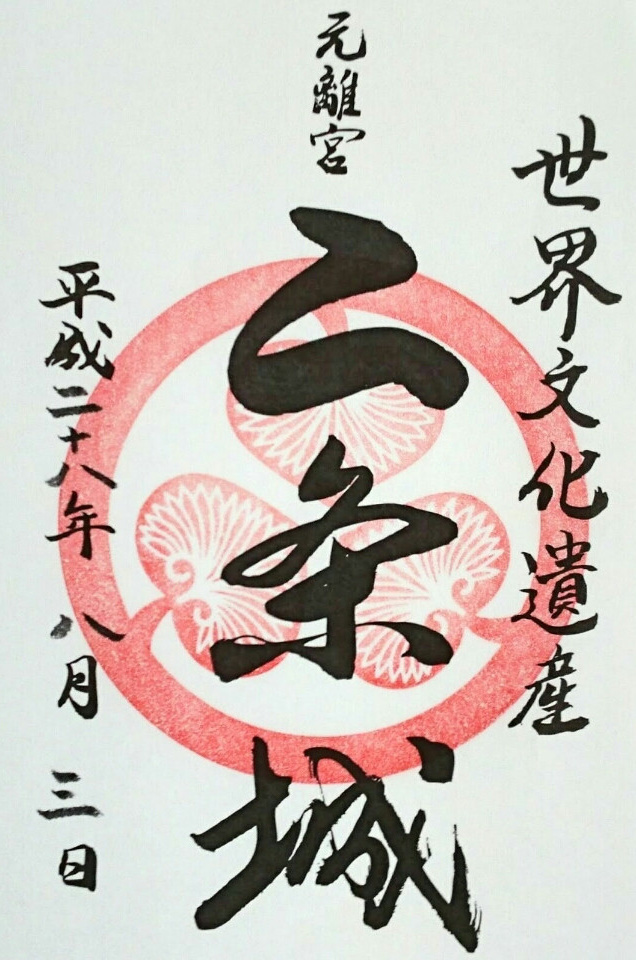 世界文化遺産
元離宮
二条城
平成二十八年 八月 三日